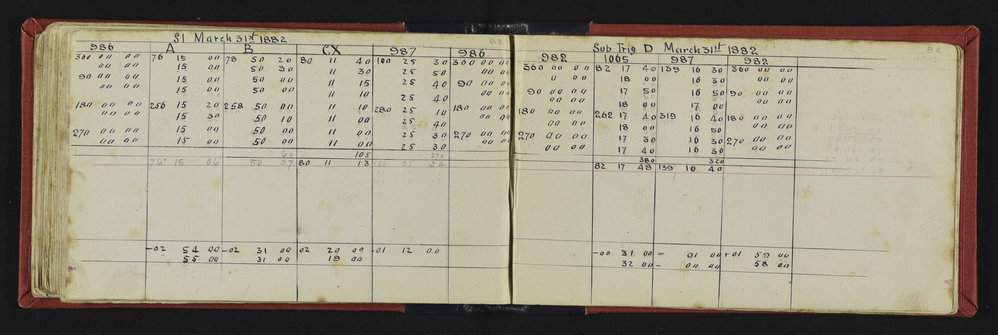 S1 March 31st 1882
B3
986 A B CX 987 986
360 00 00 76 15 00 78 50 20 80 11 40 100 25 30 360 00 00
00 00 15 00 50 30 11 30 25 50 00 00
90 00 00 15 00 50 00 11 15 25 40 90 00 00
00 00 15 00 50 30 11 10 25 40 00 00
180 00 00 256 15 20 258 50 00 11 10 280 25 10 180 00 00
00 00 15 30 50 10 11 00 25 40 00 00
270 00 00 15 00 50 00 11 00 25 30 270 00 00
00 00 15 00 50 00 11 00 25 30 00 00
60 105 270
76 15 06 50 07 80 11 13
-02 54 00 -02 31 00 02 20 00 -01 12 00
55 00 31 00 19 00
Sub Trig D March 31st 1882
B4
982 1065 987 982
360 00 00 82 17 40 139 16 30 360 00 00
0 00 18 00 16 30 00 00
90 00 00 17 50 16 50 90 00 00
00 00 18 00 17 00 00 00
180 00 00 262 17 40 319 16 40 180 00 00
00 00 18 00 16 50 00 00
270 00 00 17 30 16 30 270 00 00
00 00 17 40 16 30 00 00
380 320
82 17 48 139 16 40
-00 31 00 - 01 00 +01 59 00
32 00 - 00 00 58 00